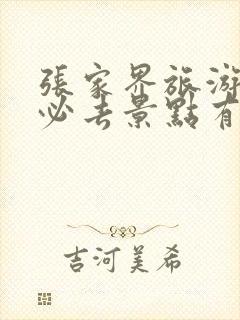 張家界旅游
必去景點有
吉河美希